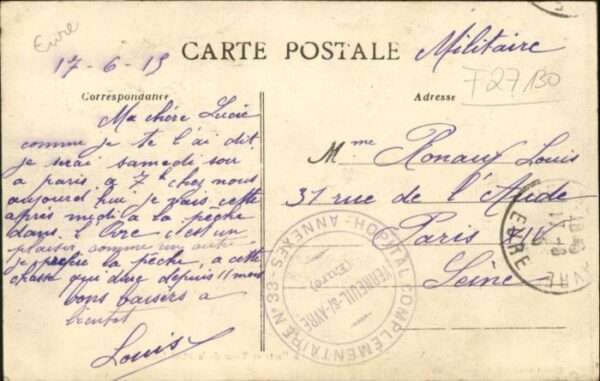 Eure
CARTE POSTALE Militaire
17-6-15
F27130
Correspondance
Adresse
Ma chère Lucie
comme je te l'ai dit
je serai samedi soir
a paris, a 7h chez nous
aujourd'hui je vais cette
après midi a la pêche
dans l'Avre c'est un
plaisir, comme un autre
je préfère la pêche, a cette
chasse qui dure depuis 11 mois
bons baisers a
bientôt
Louis
Mme Ronaux Louis
31 rue de l'Aude
Paris XIV
Seine
HOPITAL COMPLÉMENTAIRE N°33 - ANNEXES
VERNEUIL-S/-AVRE
(Eure)
AVRE
EURE